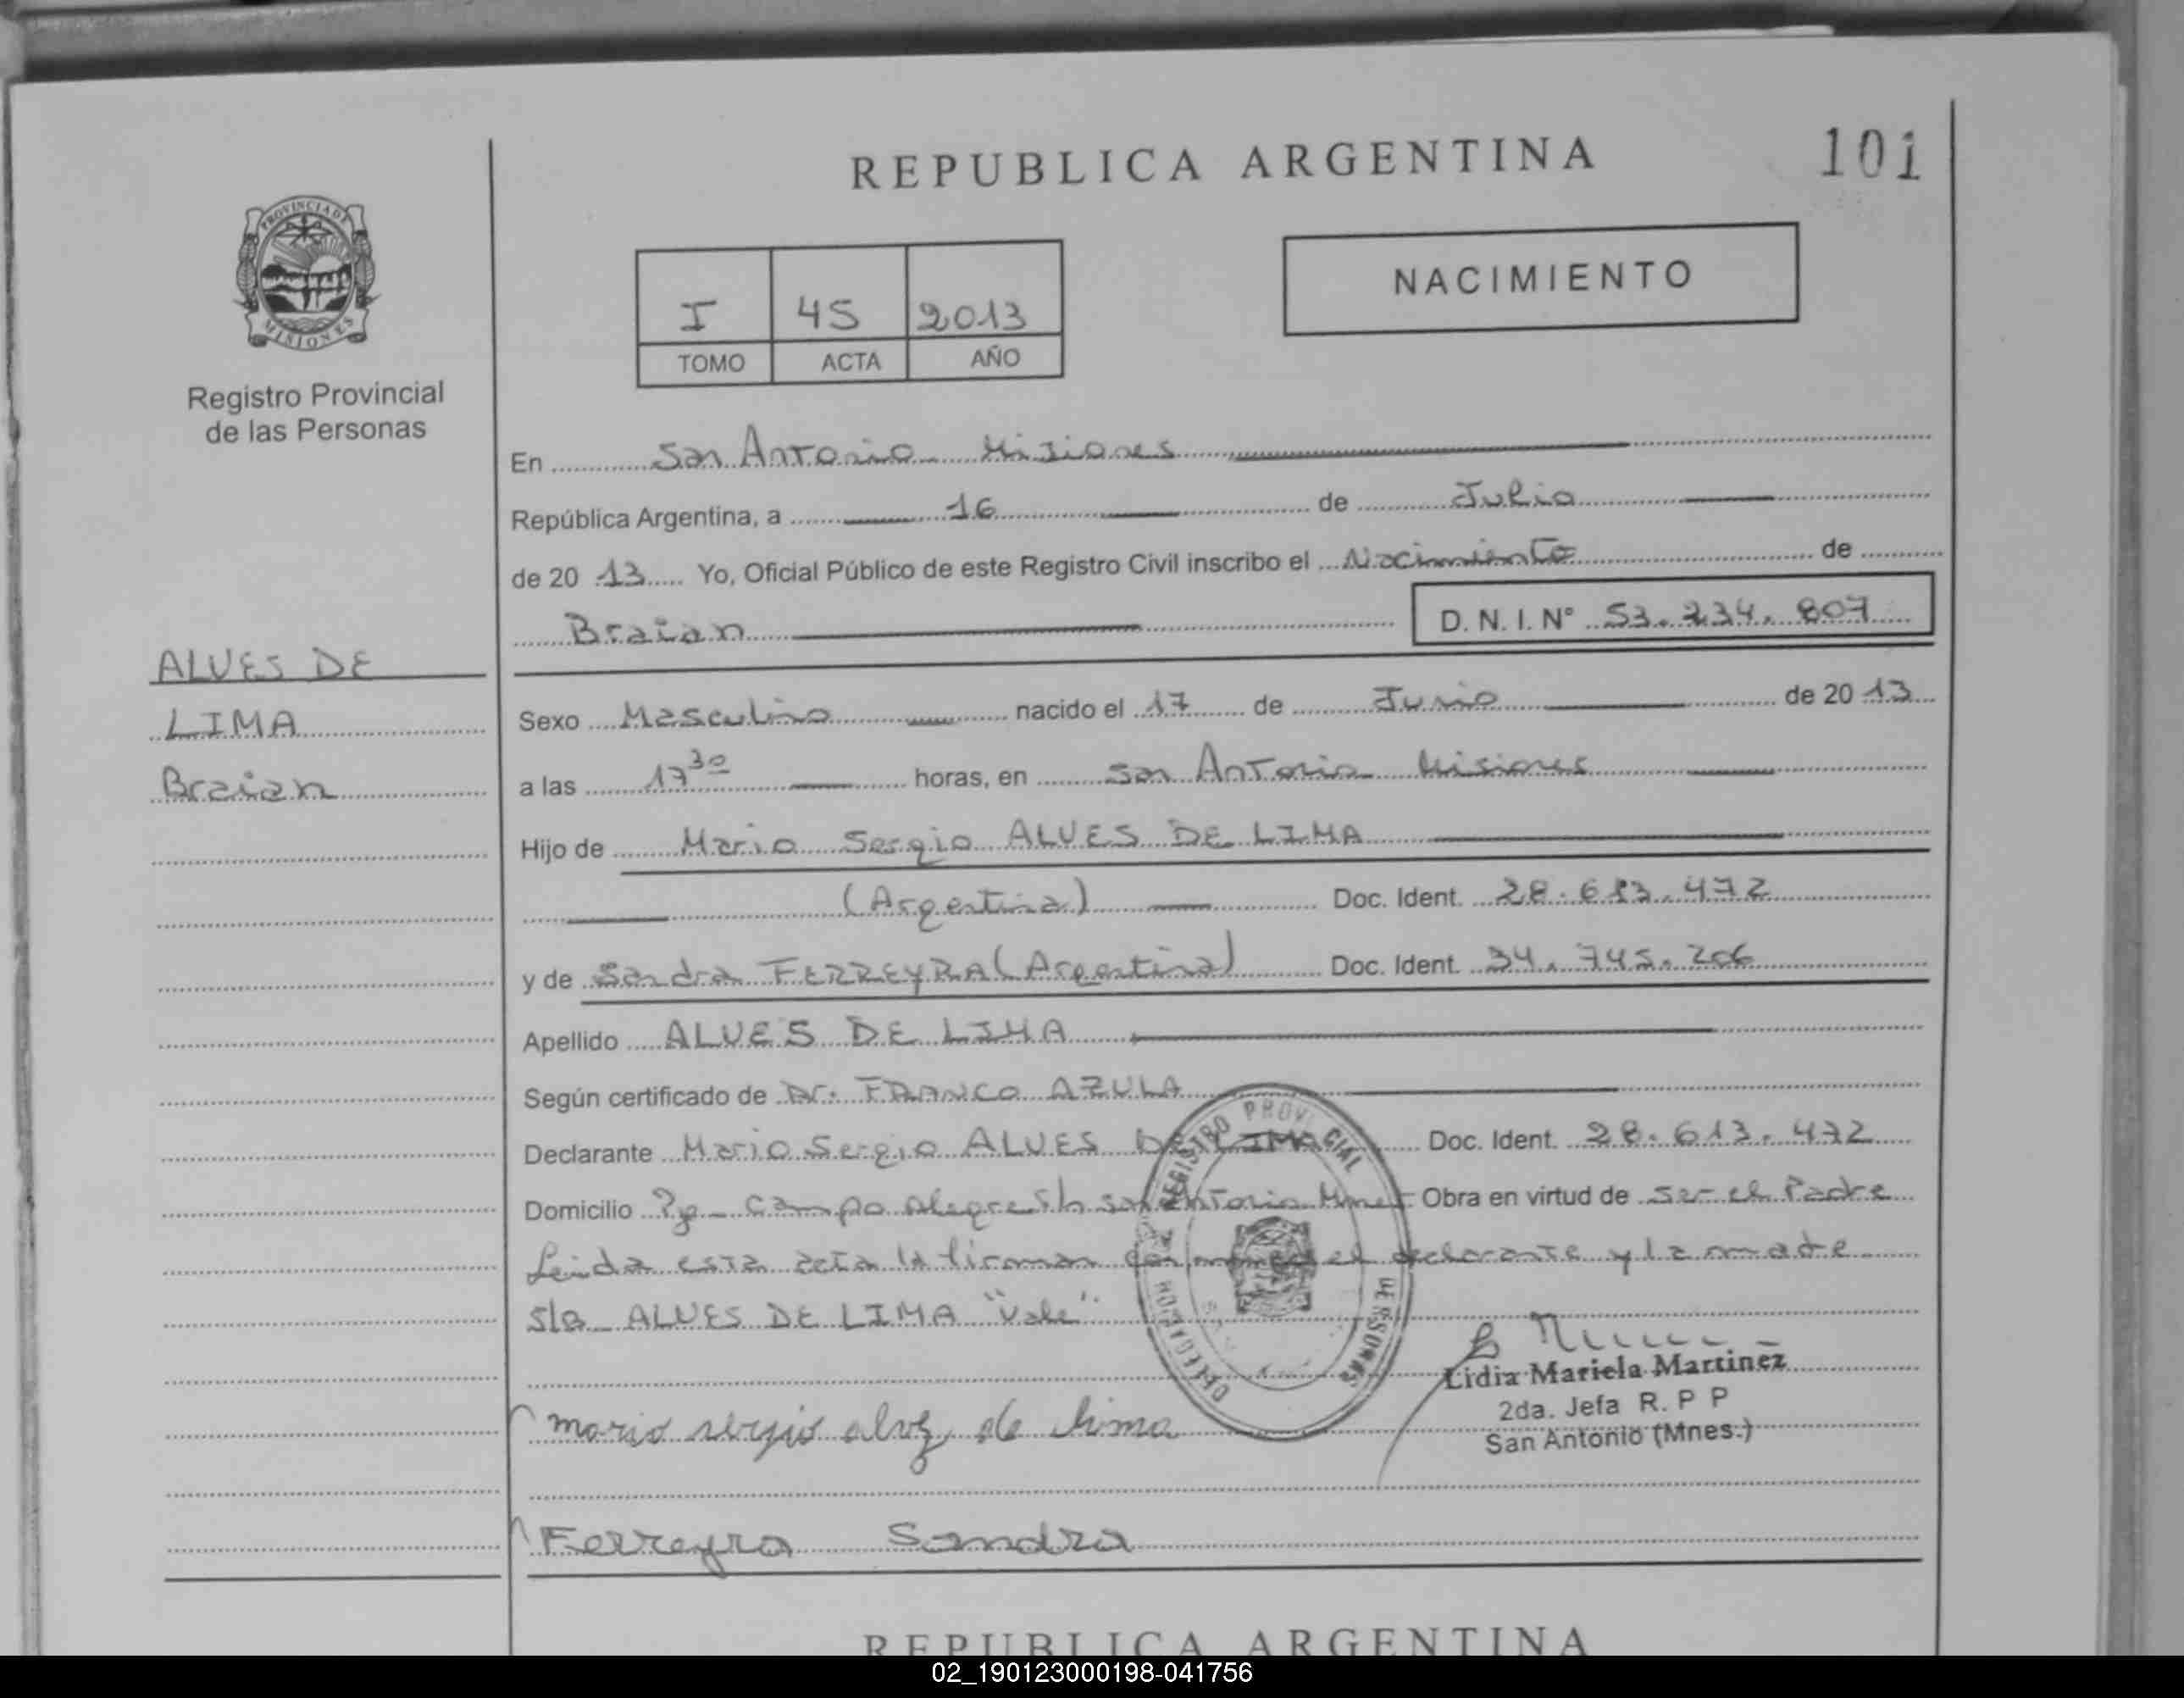 REPUBLICA ARGENTINA
101
PROVINCIA DE
MISIONES
Registro Provincial
de las Personas
I 45 2013
TOMO ACTA AÑO
NACIMIENTO
En San Antonio Misiones
República Argentina, a 16 de Julio
de 20 13 Yo, Oficial Público de este Registro Civil inscribo el Nacimiento de
Braian D. N. I. N° 53.234.807
ALVES DE
LIMA
Braian
Sexo Masculino nacido el 17 de Junio de 20 13
a las 17 30 horas, en San Antonio Misiones
Hijo de Mario Sergio ALVES DE LIMA
(Argentina) Doc. Ident. 28.613.472
y de Sandra FERREYRA (Argentina) Doc. Ident. 34.745.206
Apellido ALVES DE LIMA
Según certificado de Dr. FRANCO AZULA
Declarante Mario Sergio ALVES DE LIMA Doc. Ident. 28.613.472
Domicilio Campo Alegre San Antonio Mnes Obra en virtud de ser el Padre
Leida esta acta la firman el declarante y la madre
S/B ALVES DE LIMA "Vale"
REGISTRO PROVINCIAL
DE LAS PERSONAS
Lidia Mariela Martinez
2da. Jefa R. P P
San Antonio (Mnes.)
mario sergio alvez de lima
Ferreyra Sandra
REPUBLICA ARGENTINA
02_190123000198-041756